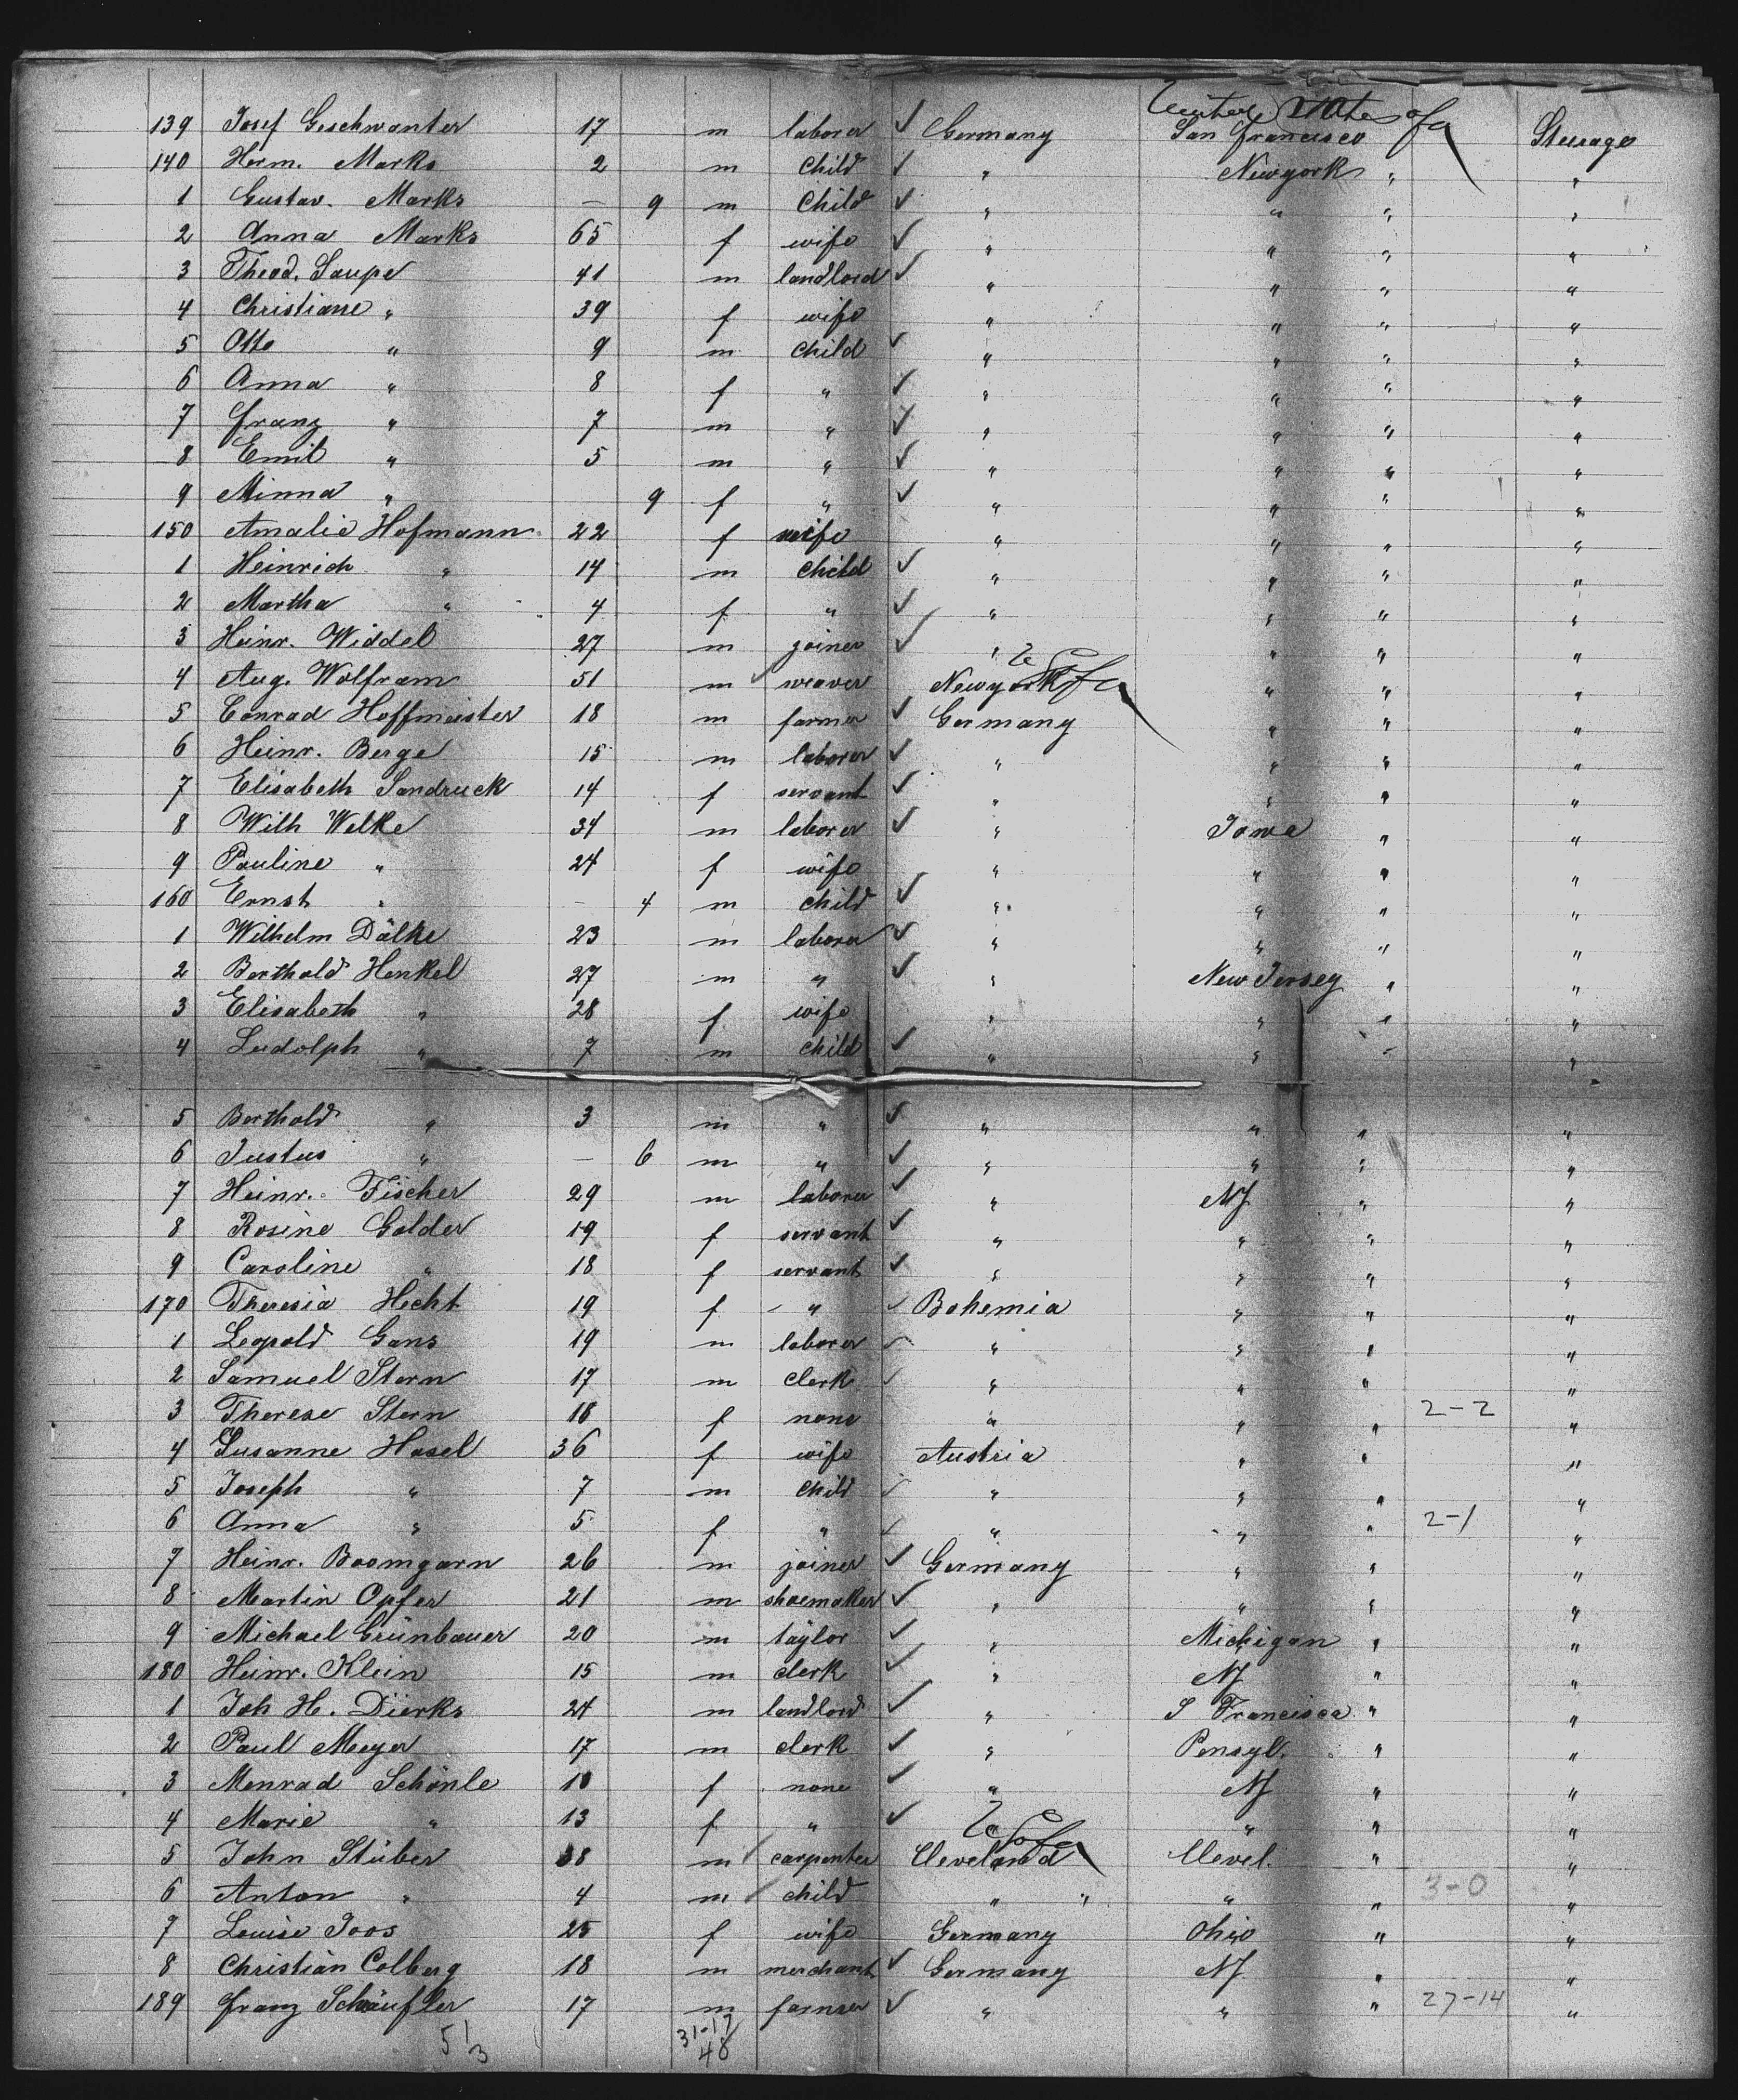 United States of a
139 Josef Geschwanter 17 m laborer ✓ Germany San Francisco Steerage
140 Herm. Marks 2 m Child ✓ " Newyork " "
1 Gustav. Marks — 9 m Child ✓ " " " "
2 Anna Marks 65 f wife ✓ " " " "
3 Theod. Saupe 41 m landlord ✓ " " " "
4 Christiane " 39 f wife " " " "
5 Otto " 9 m child ✓ " " " "
6 Anna " 8 f " ✓ " " " "
7 Franz " 7 m " ✓ " " " "
8 Emil " 5 m " ✓ " " " "
9 Minna " 9 f " ✓ " " " "
150 Amalie Hofmann 22 f wife " " " "
1 Heinrich " 14 m child ✓ " " " "
2 Martha " 4 f " ✓ " " " "
3 Heinr. Widdel 27 m joiner ✓ " " " "
4 Aug. Wolfram 51 m ✓ weaver Newyork U S of a " " "
5 Conrad Hoffmeister 18 m farmer ✓ Germany " " "
6 Heinr. Berge 15 m laborer ✓ " " " "
7 Elisabeth Sandruck 14 f servant ✓ " " " "
8 Wilh Welke 34 m laborer ✓ " Iowa " "
9 Pauline " 24 f wife " " " "
160 Ernst " — 4 m child ✓ " " " "
1 Wilhelm Dälke 23 m laborer ✓ " " " "
2 Berthold Henkel 27 m " ✓ " New Jersey " "
3 Elisabeth " 28 f wife " " " "
4 Ludolph " 7 m child ✓ " " " "
5 Berthold " 3 m " ✓ " " " "
6 Justus " — 6 m " ✓ " " " "
7 Heinr. Fischer 29 m laborer ✓ " NY " "
8 Rosine Golder 19 f servant ✓ " " " "
9 Caroline " 18 f servant ✓ " " " "
170 Theresia Hecht 19 f " ✓ Bohemia " " "
1 Leopold Gans 19 m laborer ✓ " " " "
2 Samuel Stern 17 m clerk ✓ " " " "
3 Therese Stern 18 f none " " " 2-2 "
4 Susanne Hasel 36 f wife Austria " " "
5 Joseph " 7 m child ✓ " " " "
6 Anna " 5 f " ✓ " " " 2-1 "
7 Heinr. Boomgarn 26 m joiner ✓ Germany " " "
8 Martin Opfer 21 m shoemaker ✓ " " " "
9 Michael Grünbauer 20 m taylor ✓ " Michigan " "
180 Heinr. Klein 15 m clerk ✓ " NY " "
1 Joh H. Dierks 24 m landlord ✓ " S Francisca " "
2 Paul Meyer 17 m clerk ✓ " Pensyl. " "
3 Menrad Schönle 10 f none ✓ " NY " "
4 Marie " 13 f " ✓ " " " "
5 John Stüber 38 m ✓ carpenter Cleveland U S of a Clevel. " "
6 Anton " 4 m ✓ child " " " " 3-0 "
7 Louise Joos 25 f wife Germany Ohio " "
8 Christian Colberg 18 m merchant ✓ Germany NY " "
189 Franz Schäufler 17 m farmer ✓ " " " 27-14 "
51/3 31-17
48